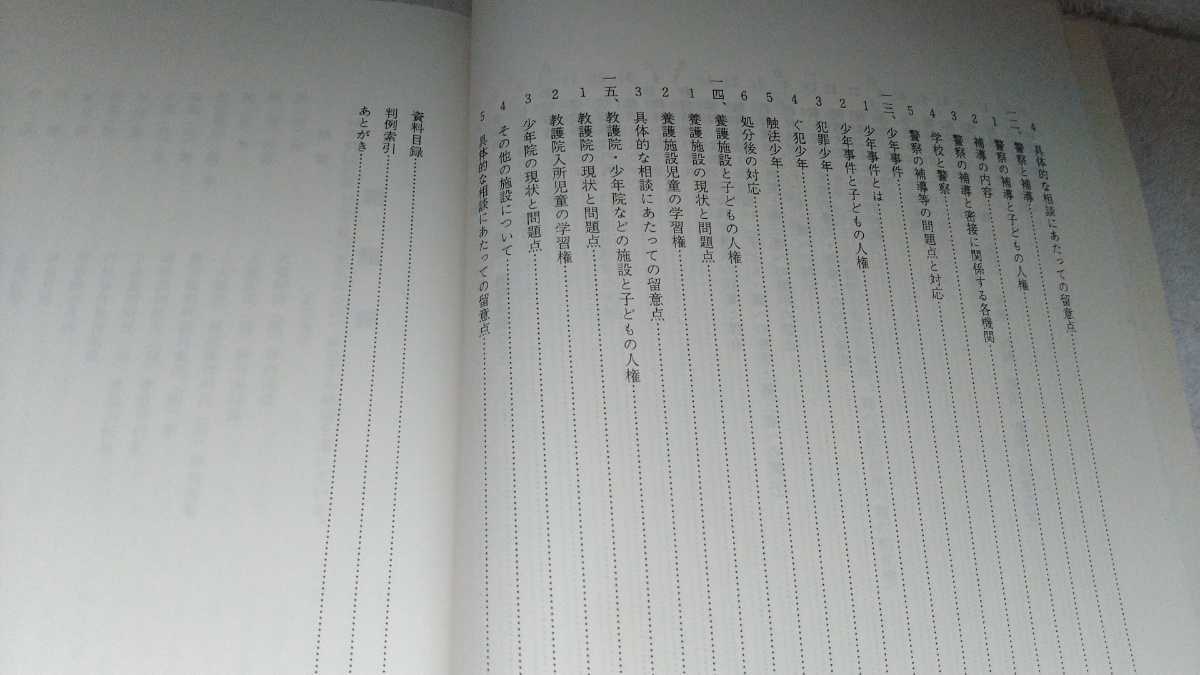 4 具体的な相談にあたっての留意点
一二、警察と補導
1 警察の補導と子どもの人権
2 補導の内容
3 警察の補導と密接に関係する各機関
4 学校と警察
5 警察の補導等の問題点と対応
一三、少年事件
1 少年事件とは
2 少年事件と子どもの人権
3 犯罪少年
4 ぐ犯少年
5 触法少年
6 処分後の対応
一四、養護施設と子どもの人権
1 養護施設の現状と問題点
2 養護施設児童の学習権
3 具体的な相談にあたっての留意点
一五、教護院・少年院などの施設と子どもの人権
1 教護院の現状と問題点
2 教護院入所児童の学習権
3 少年院の現状と問題点
4 その他の施設について
5 具体的な相談にあたっての留意点
資料目録
判例索引
あとがき